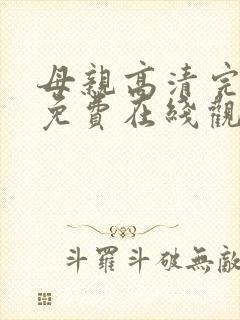 母親高清完
免費在綫觀
斗羅斗破無敵